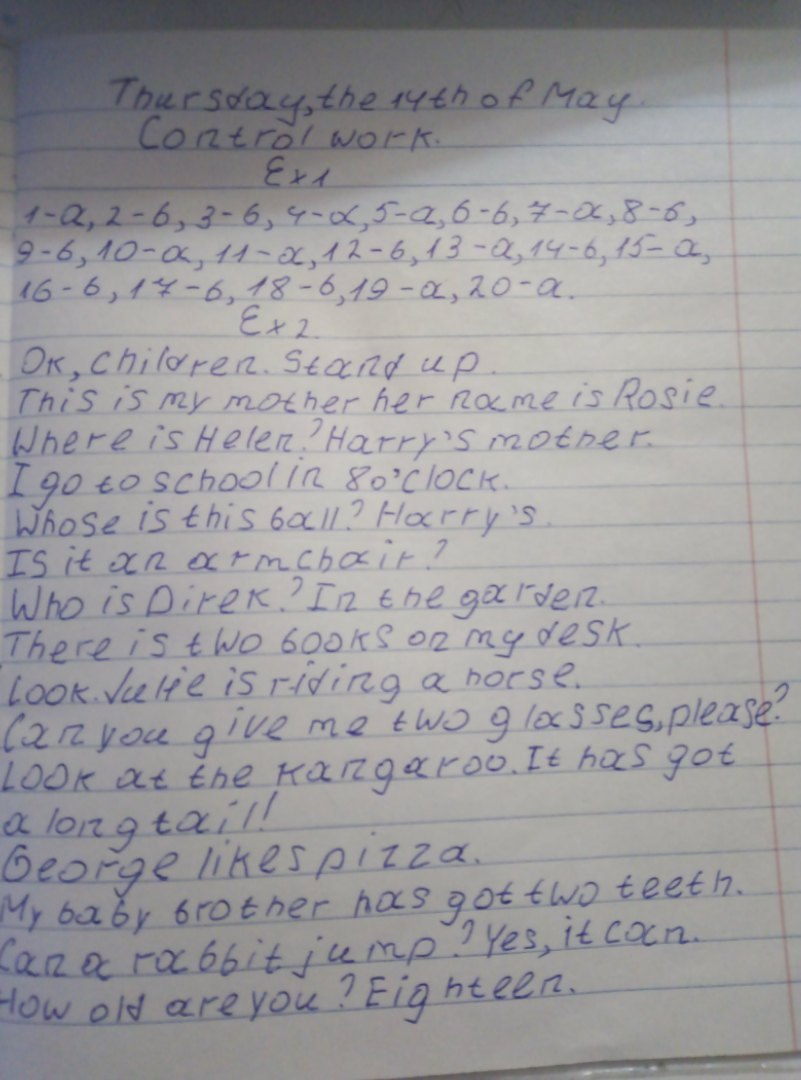 Thursday, the 14th of May.
Control work.
Ex 1
1-a, 2-б, 3-б, 4-a, 5-a, 6-б, 7-a, 8-б,
9-б, 10-a, 11-a, 12-б, 13-a, 14-б, 15-a,
16-б, 17-б, 18-б, 19-a, 20-a.
Ex 2.
OK, children. Stand up.
This is my mother her name is Rosie.
Where is Helen? Harry's mother.
I go to school in 8 o'clock.
Whose is this ball? Harry's.
Is it an armchair?
Who is Direk? In the garden.
There is two books on my desk.
Look. Julie is riding a horse.
Can you give me two glasses, please?
Look at the kangaroo. It has got
a long tail!
George likes pizza.
My baby brother has got two teeth.
Can a rabbit jump? Yes, it can.
How old are you? Eighteen.